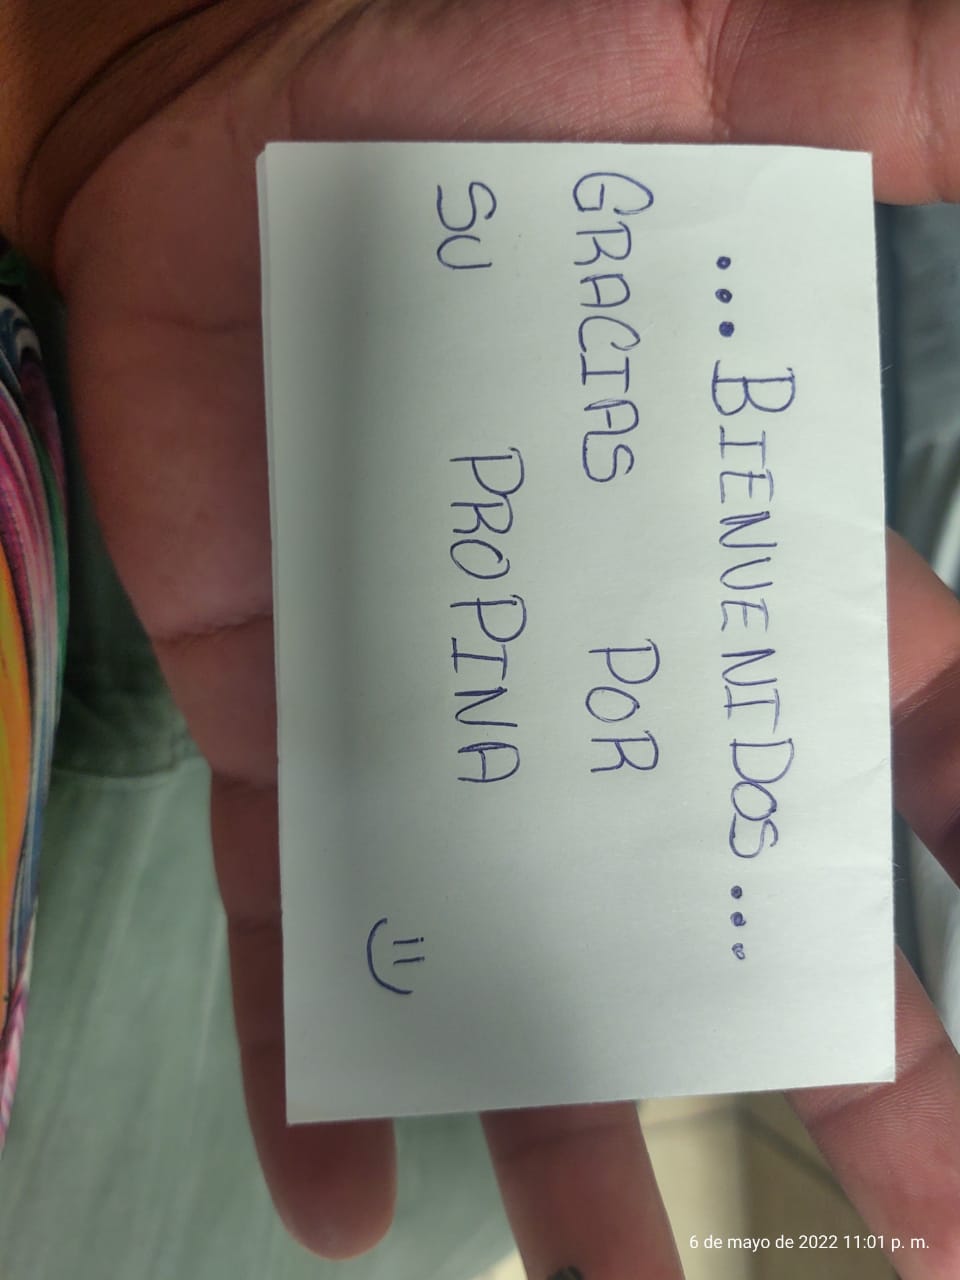 ...BIENVENIDOS...
GRACIAS POR
SU PROPINA
6 de mayo de 2022 11:01 p. m.